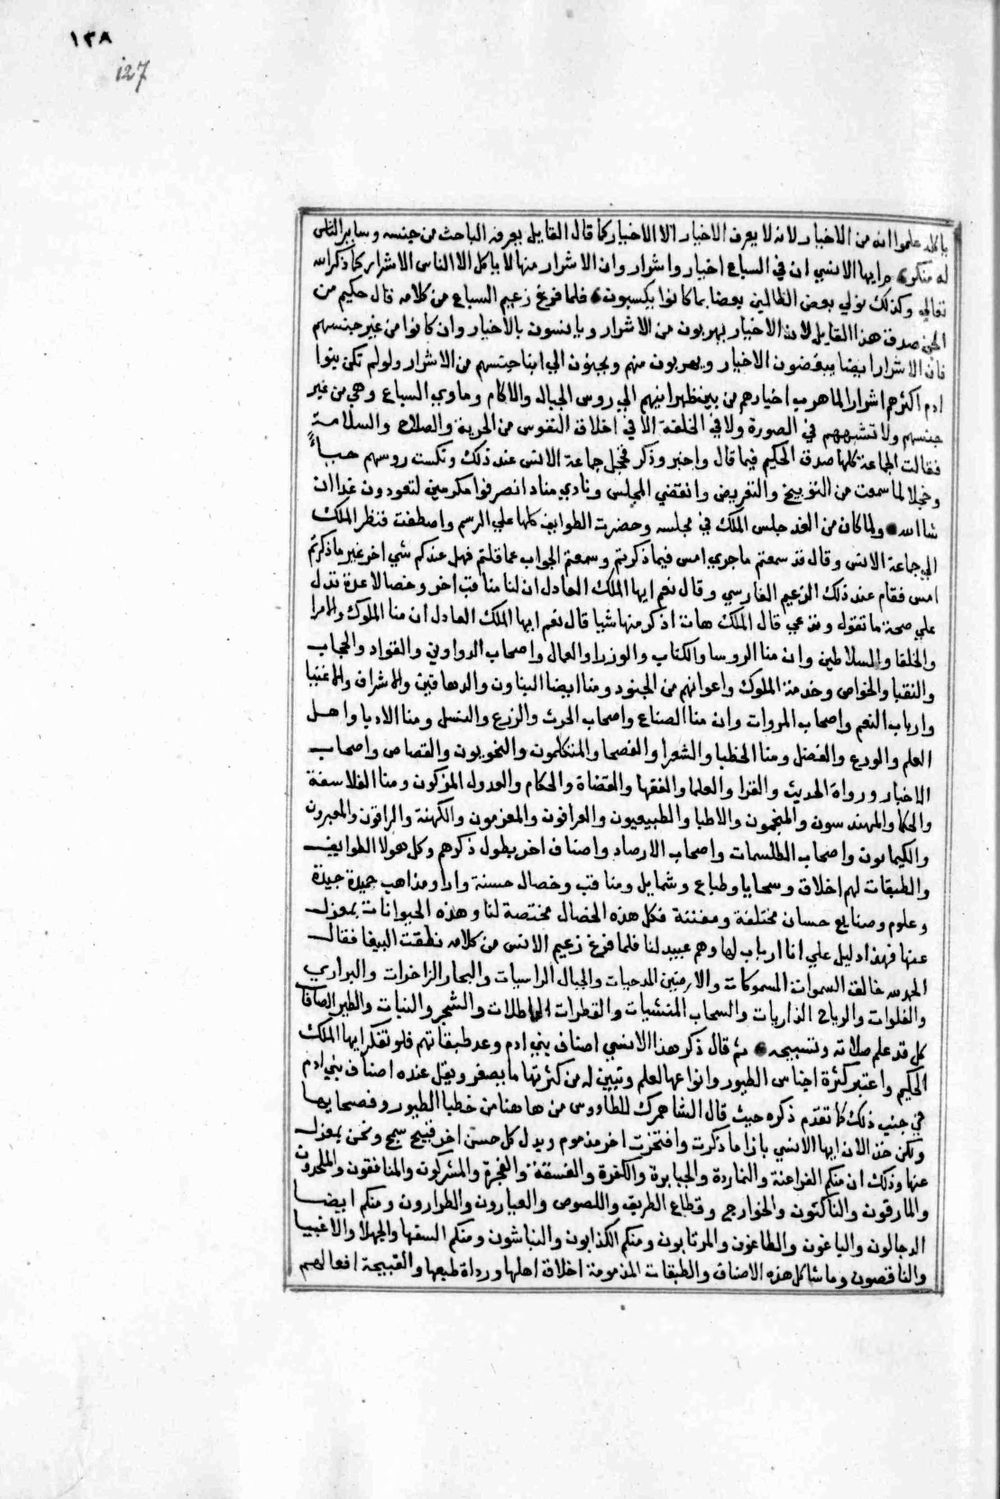 ١٣٨
127
ياكله علموا انه من الاخيار لانه لا يعرف الاخيار الا الاخيار كما قال القايل يعرفه الباحث من جنسه وساير الناس
له منكر ثم ايها الانسي ان في السباع اخيار واشرار وان الاشرار منها لا ياكل الا الناس الاشرار كما ذكر الله
تعالي وكذلك نولي بعض الظالمين بعضا بما كانوا يكسبون فلما فرغ زعيم السباع من كلامه قال حكيم من
الجن صدق هذا القايل لان الاخيار يهربون من الاشرار ويانسون بالاخيار وان كانوا من غير جنسهم
فان الاشرار ايضا يبغضون الاخيار ويهربون منهم ويجيؤن الي ابنا جنسهم من الاشرار ولو لم تكن بنوا
ادم اكثرهم اشرار لما هرب اخيارهم من بين ظهرانيهم الي روس الجبال والاكام وماوي السباع وهي من غير
جنسهم ولا تشبههم في الصورة ولا في الخلقة الا في اخلاق النفوس من الحرية والصلاح والسلامة
فقالت الجماعة كلها صدق الحكيم فيما قال واخبر وذكر فخجل جماعة الانس عند ذلك ونكست روسهم حياءً
وخجلا لما سمعت من التوبيخ والتعريض وانقضي المجلس ونادي مناد انصرفوا مكرمين لتعودون غدا ان
شا الله ولما كان من الغد جلس الملك في مجلسه وحضرت الطوايف كلها علي الرسم واصطفت فنظر الملك
الي جماعة الانس وقال قد سمعتم ما جري امس فيما ذكرتم وسمعتم الجواب عما قلتم فهل عندكم شي اخر غير ما ذكرتم
امس فقام عند ذلك الزعيم الفارسي وقال نعم ايها الملك العادل ان لنا مناقب اخر وخصالا عدة تدل
علي صحة ما نقول وندعي قال الملك هات اذكر منها شيا قال نعم ايها الملك العادل ان منا الملوك والامرا
والخلفا والسلاطين وان منا الروسا والكتاب والوزرا والعمال واصحاب الدواوين والقواد والحجاب
والنقبا والخواص وخدمة الملوك واعوانهم من الجنود ومنا ايضا البناون والدهاقين والاشراف والاغنيا
وارباب النعم واصحاب المروات وان منا الصناع واصحاب الحرث والزرع والنسل ومنا الادبا واهل
العلم والورع والفضل ومنا الخطبا والشعرا والفصحا والمتكلمون والنحويون والقصاص واصحاب
الاخبار ورواة الحديث والقرا والعلما والفقها والقضاة والحكام والعدول المزكون ومنا الفلاسفة
والحكما والمهندسون والمنجمون والاطبا والطبيعيون والعرافون والمعزمون والكهنة والراقون والمعبرون
والكيمائون واصحاب الطلسمات واصحاب الارصاد واصناف اخر يطول ذكرهم وكل هولا الطوايف
والطبقات لهم اخلاق وسجايا وطباع وشمايل ومناقب وخصال حسنة وارا ومذاهب حميدة جيدة
وعلوم وصنايع حسان مختلفة ومفننة فكل هذه الخصال مختصة لنا وهذه الحيوانات بمعزل
عنها فهذا دليل علي انا ارباب لها وهم عبيد لنا فلما فرغ زعيم الانس من كلامه نطقت الببغا فقال
الحمد لله خالق السموات المسموكات والارضين المدحيات والجبال الراسيات والبحار الزاخرات والبراري
والفلوات والرياح الذاريات والسحاب المنشيات والقطرات الهاطلات والشجر والنبات والطير الصافات
كل قد علم صلاته وتسبيحه ثم قال ذكر هذا الانسي اصناف بني ادم وعد طبقاتهم فلو تفكر ايها الملك
الحكيم واعتبر كثرة اجناس الطيور وانواعها لعلم وتبين له من كثرتها ما يصغر ويقل عنده اصناف بني ادم
في جنب ذلك كما تقدم ذكره حيث قال الشاهمرك للطاووس من هاهنا من خطبا الطيور وفصحايها
ولكن خذ الان ايها الانسي بازا ما ذكرت وافتخرت اخر مذموم وبدل كل حسن اخر قبيح سمج ونحن بمعزل
عنها وذلك ان منكم الفراعنة والنماردة والجبابرة والكفرة والفسقة والفجرة والمشركون والمنافقون والملحدون
والمارقون والناكثون والخوارج وقطاع الطريق واللصوص والعيارون والطرارون ومنكم ايضا
الدجالون والباغون والطاغون والمرتابون ومنكم الكذابون والنباشون ومنكم السفها والجهلا والاغبيا
والناقصون وما شاكل هذه الاصناف والطبقات المذمومة اخلاق اهلها ورداة طبعها والقبيحة افعالهم